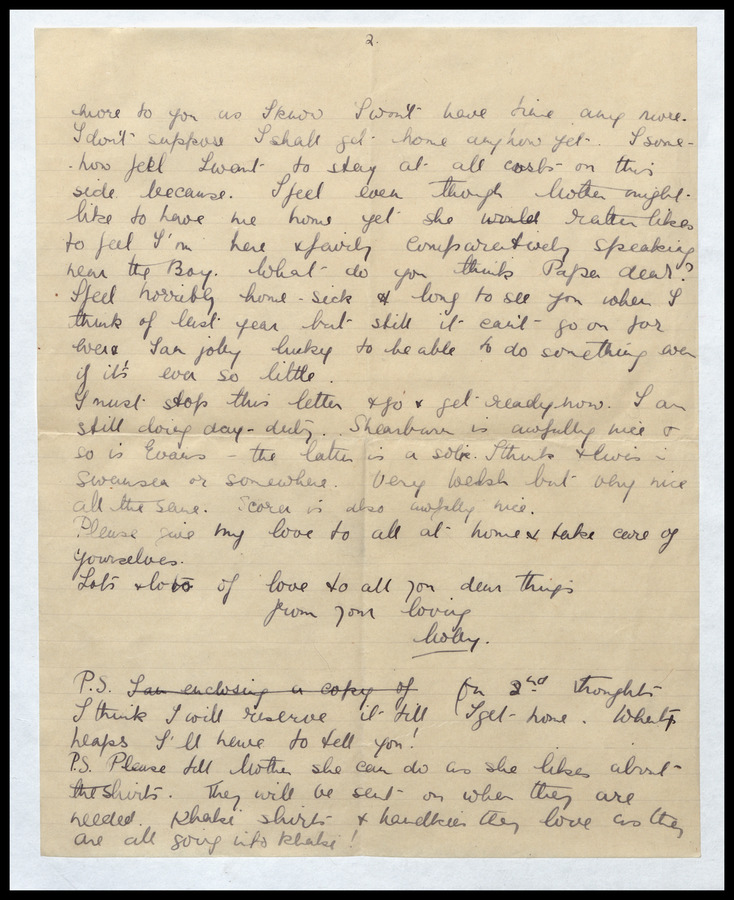 2.
more to you as I know I won't have time any more.
I don't suppose I shall get home anyhow yet. I some-
how feel I want to stay at all costs on this
side because. I feel even though Mother might
like to have me home yet she would rather likes
to feel I'm here & fairly comparatively speaking
near the Boy. What do you think Papa dear?
I feel horribly home-sick & long to see you when I
think of last year but still it can't go on for
ever & I am jolly lucky to be able to do something even
if it's ever so little.
I must stop this letter & go & get ready now. I am
still doing day-duty. Shearburn is awfully nice &
so is Evans - the latter is a I think & lives in
Swansea or somewhere. Very Welsh but very nice
all the same. is also awfully nice.
Please give my love to all at home & take care of
yourselves.
Lots & lots of love to all you dear things
from your loving
P.S. I am enclosing a copy of On 2nd thoughts
I think I will reserve it till I get home. What
heaps I'll have to tell you!
P.S. Please tell Mother she can do as she likes about
the shirts. They will be sent on when they are
needed. Khaki shirts & handkies they love as they
are all going into khaki!